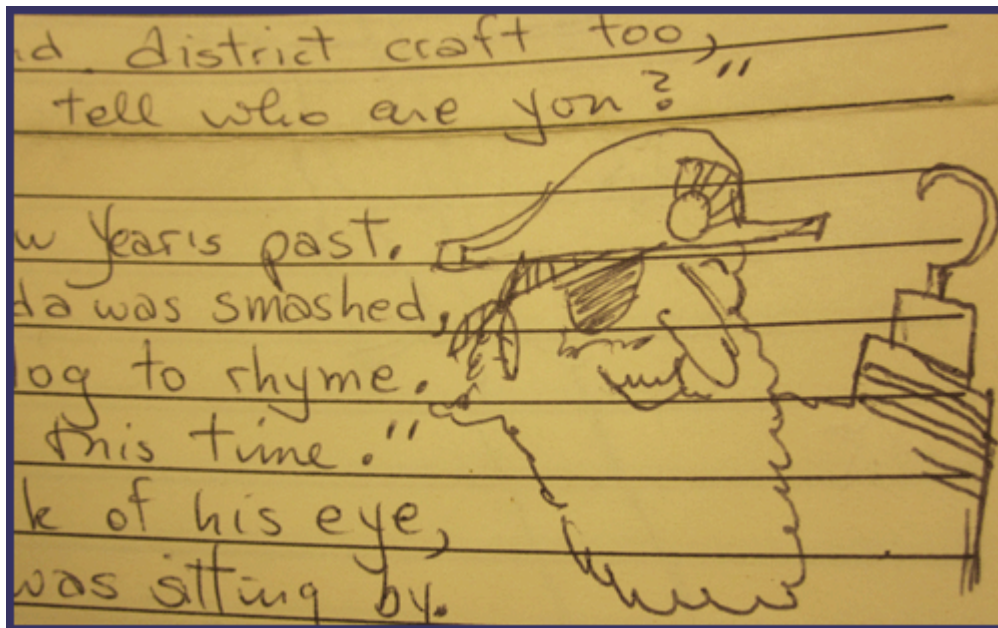 nd district craft too,
tell who are you?"
w year's past.
da was smashed,
og to rhyme.
this time."
k of his eye,
was sitting by.